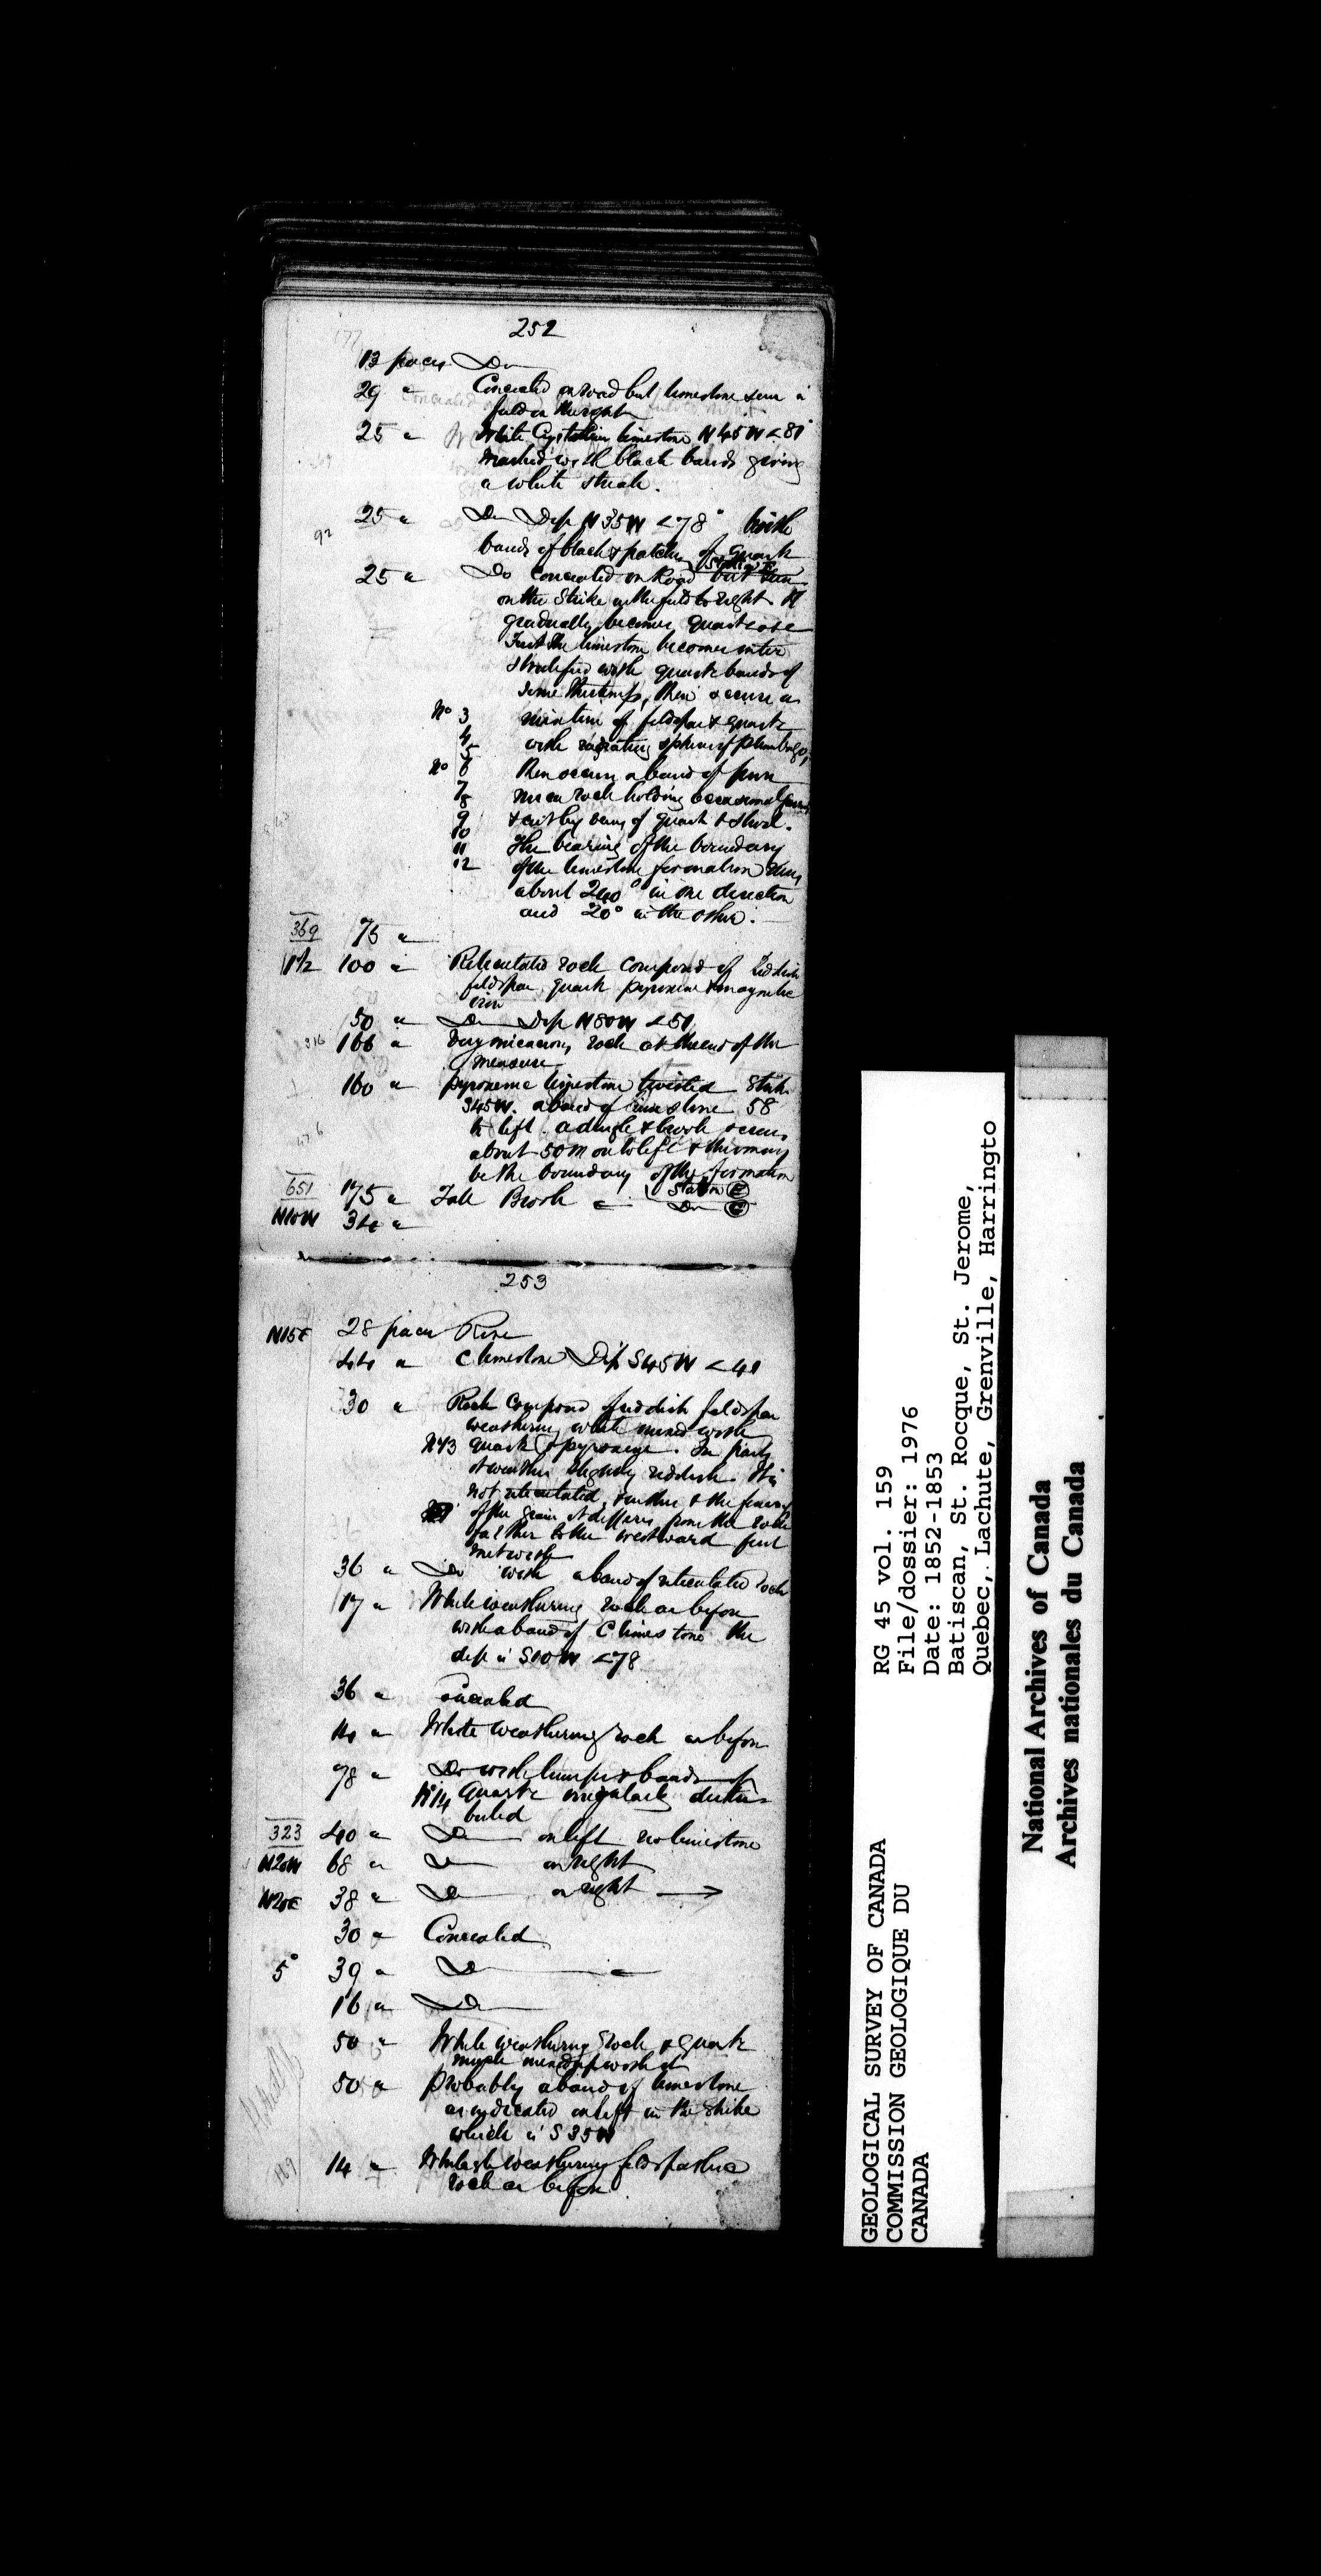 252
13 paces Do
29 " Concealed on road but limestone seen in
field on the right
25 " White Crystalline limestone N45W <81°
marked with black bands giving
a white streak.
92
25 " Do Dip N35W <78° with
bands of black & patches of quartz
25 " Do concealed on Road but seen
on the Strike in the field to right It
gradually becomes quartzose
First the limestone becomes inter
stratified with quartz bands of
some thickness, then occurs a
No 3 mixture of feldspar & quartz
4 with radiating spheres of plumbago,
5
No 6 Then occurs a band of pure
7 mica rock holding occasional
8
9 & cut by veins of quartz & shorl.
10
11 The bearing of the boundary
12 of the limestone formation
about 240° in one direction
and 20° in the other.
369 75 "
100 " Reticulated rock composed of reddish
feldspar quartz pyroxene & magnetic
iron
50 " Do Dip N80W <51
316 166 " Very micaceous rock at the end of the
measure
160 " pyroxenic limestone twisted Strike
S45W. a band of limestone 58
to left. a dingle & brook occurs
about 50 m on to left & this may
be the boundary of the formation
Station E
651 175 " Fall Brook " Do C
N10W 34 "
253
N15E 28 paces Rise
44 " C limestone Dip S45W <41
30 " Rock composed of reddish feldspar
weathering white mixed with
No 13 quartz & pyroxene. In parts
it weathers slightly reddish. It is
not reticulated, & in this & the fineness
of the grain it differs from the rock
farther to the westward first
met with
36 " Do with a band of reticulated rock
17 " White weathering rock as before
with a band of C limestone the
dip is S10W <78
36 " Concealed
14 " White weathering rock as before
78 " Do with lumps & bands of
No 14 quartz irregularly distri-
buted
323 40 " Do on left no limestone
N20W 68 " Do on right
N20E 38 " Do on right →
30 " Concealed
5° 39 " Do "
16 " Do
50 " White weathering rock & quartz
much mixed up with it
50 " Probably a band of limestone
as indicated on left in the strike
which is S35W
14 " Whitish weathering feldspathic
rock as before
GEOLOGICAL SURVEY OF CANADA
COMMISSION GEOLOGIQUE DU
CANADA
RG 45 vol. 159
File/dossier: 1976
Date: 1852-1853
Batiscan, St. Rocque, St. Jerome,
Quebec, Lachute, Grenville, Harringto
National Archives of Canada
Archives nationales du Canada